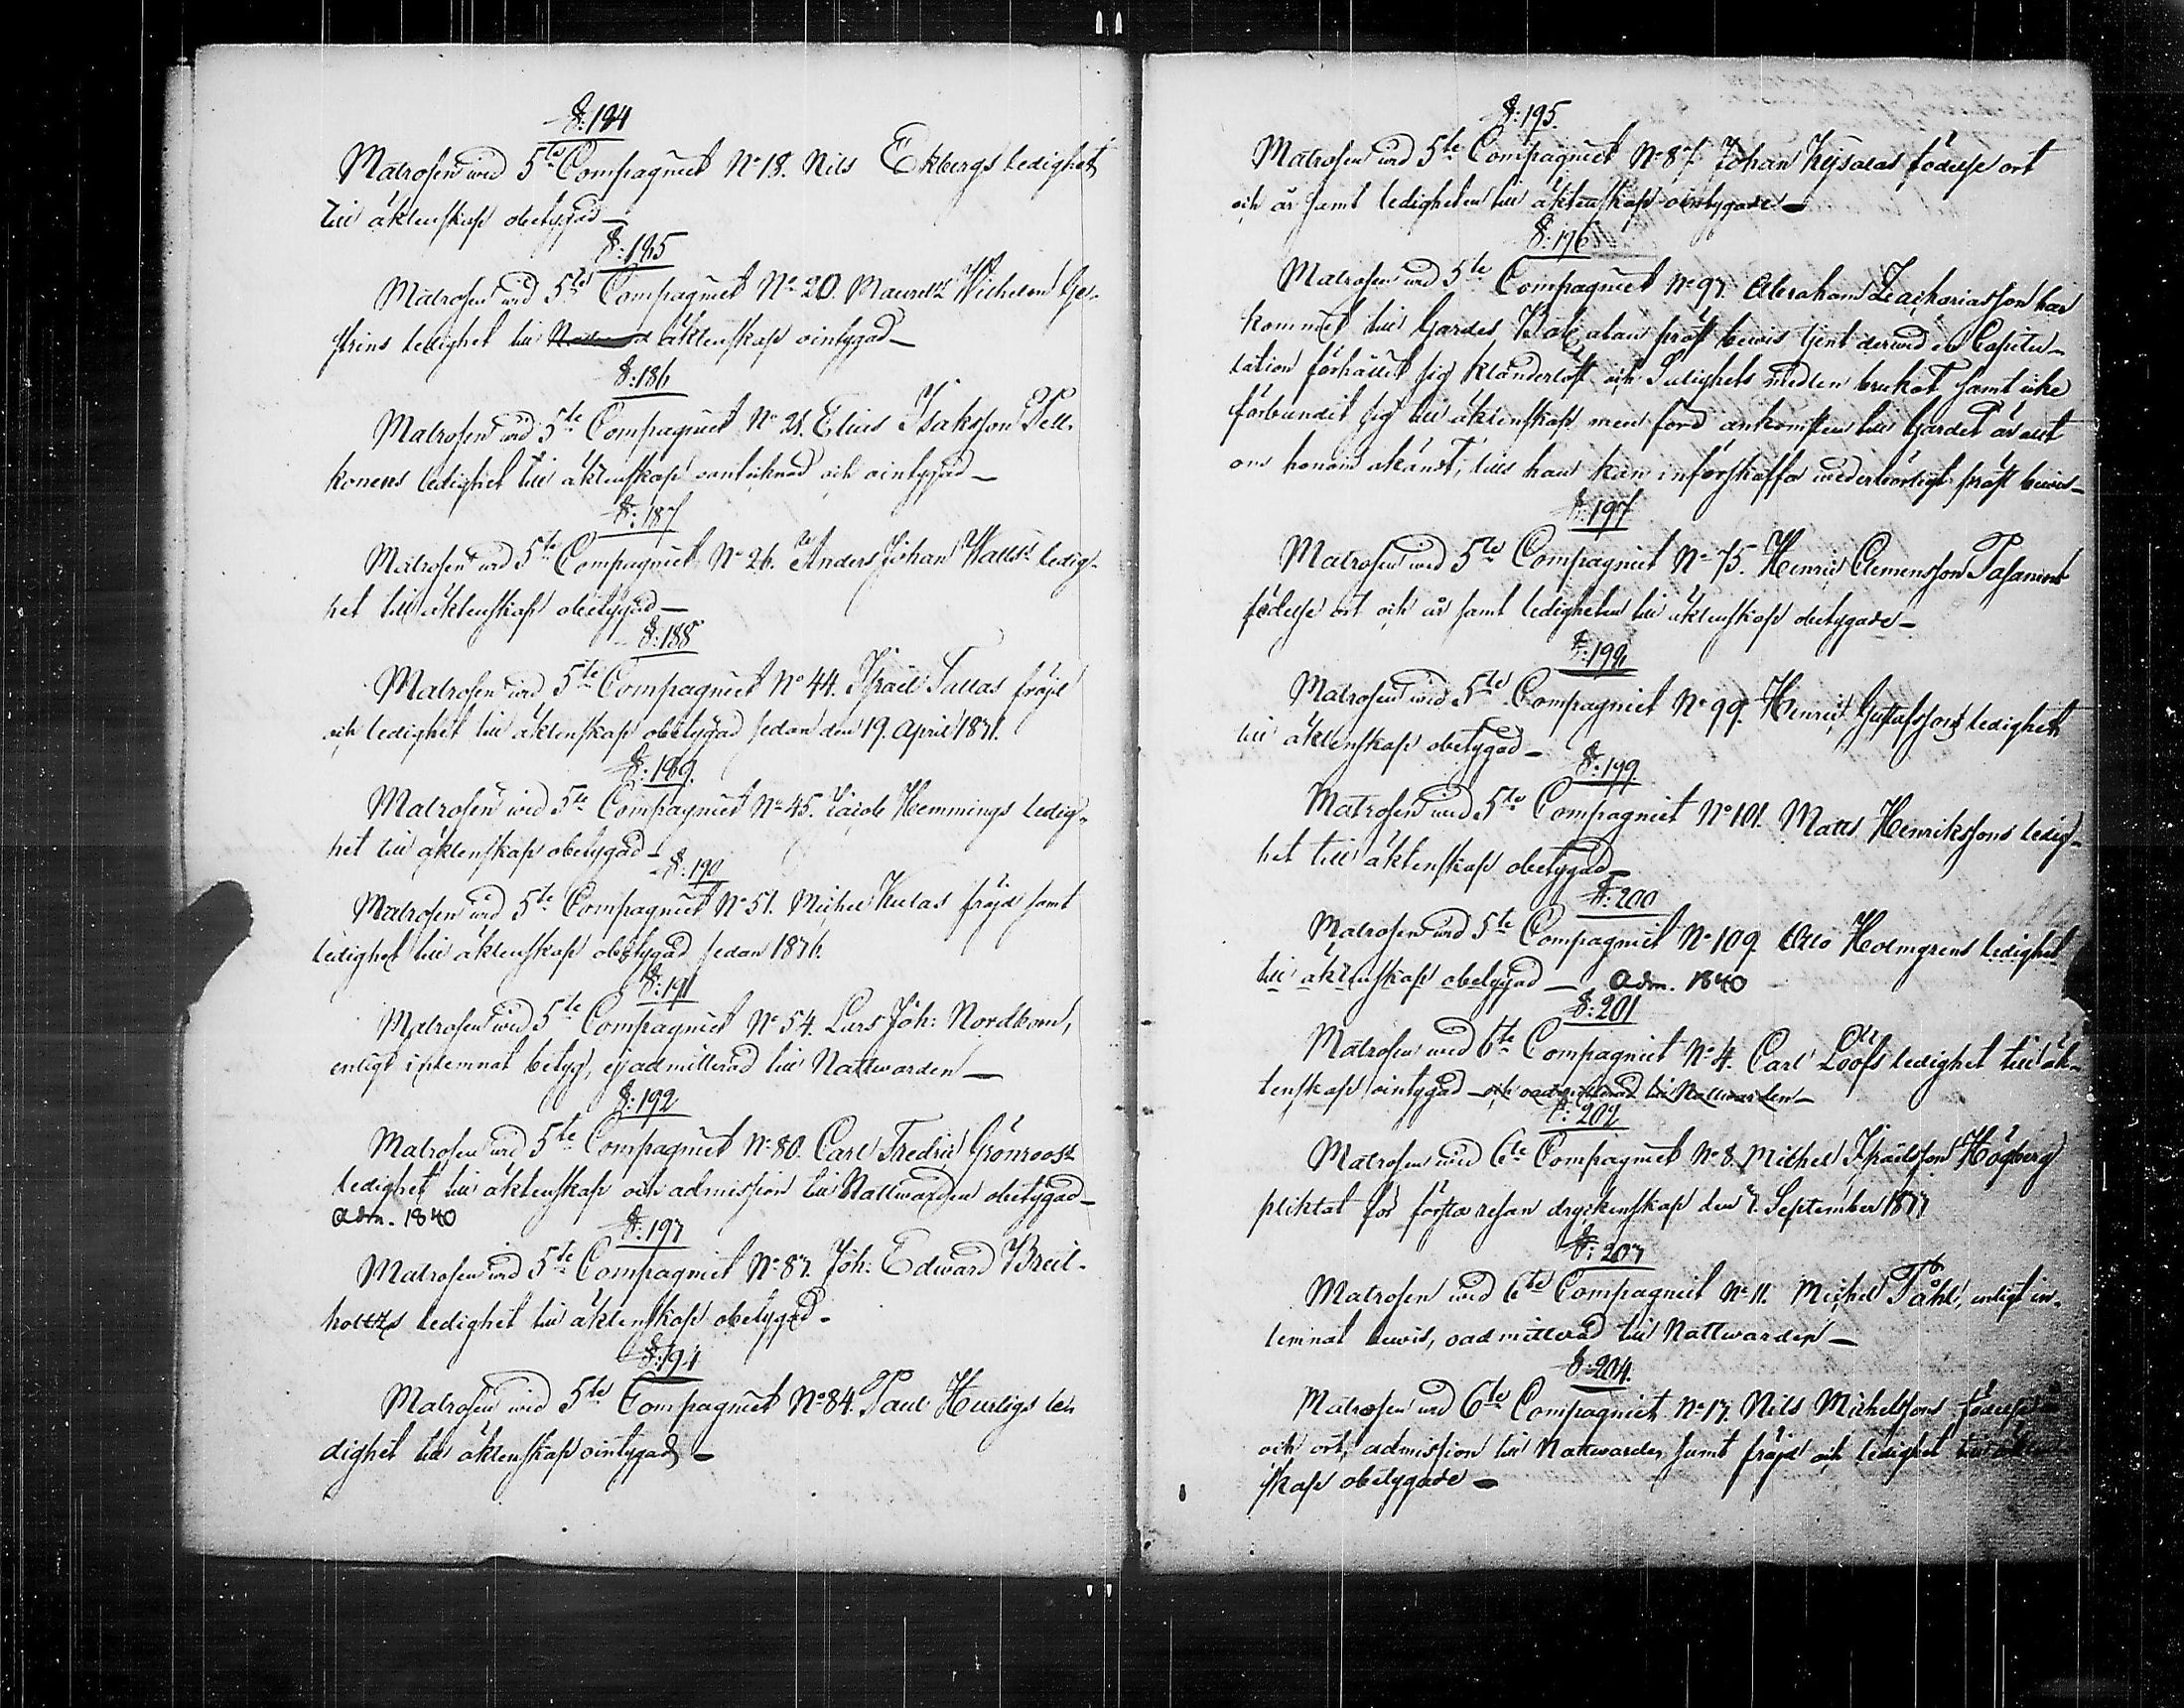 §: 184
Matrosen wid 5te Compagniet No 18. Nils Ekbergs ledighet
till äktenskap obetygad —
§: 185
Matrosen wid 5te Compagniet No 20. Mauritz Wilhelm
ledighet till äktenskap ointygad —
§: 186
Matrosen wid 5te Compagniet No 21. Elias Isaksson Pell-
konens ledighet till äktenskap oantecknad och ointygad —
§: 187
Matrosen wid 5te Compagniet No 26. Anders Johan Walls ledig-
het till äktenskap obetygad —
§: 188
Matrosen wid 5te Compagniet No 44. Israel Tallas fräjd
och ledighet till äktenskap obetygad sedan den 19. April 1831.
§: 189
Matrosen wid 5te Compagniet No 45. Jacob Hemmings ledig-
het till äktenskap obetygad —
§: 190
Matrosen wid 5te Compagniet No 51. Michel Kulas fräjd samt
ledighet till äktenskap obetygad sedan 1836.
§: 191
Matrosen wid 5te Compagniet No 54. Lars Joh: Nordbom,
enligt inlemnat betyg, ej admitterad till Nattwarden —
§: 192
Matrosen wid 5te Compagniet No 80. Carl Fredric Grönroos
ledighet till äktenskap och admission till Nattwarden obetygad —
Adm. 1840
§: 193
Matrosen wid 5te Compagniet No 83. Joh: Edward Breit-
holtzs ledighet till äktenskap obetygad —
§: 194
Matrosen wid 5te Compagniet No 84. Paul Hurtigs le-
dighet till äktenskap ointygad —
§: 195.
Matrosen wid 5te Compagniet No 87. Johan Keisalas födelse ort
och år samt ledigheten till äktenskap ointygade —
§: 196
Matrosen wid 5te Compagniet No 93. Abraham Zachariasson har
kommit till Gardes Bat: utan präst bewis tjent derwid en Capitu-
lation förhållit sig klanderlöst och Salighets medlen brukat samt icke
förbundit sig till äktenskap men före ankomsten till Gardet är allt
om honom okändt, tills han kan införskaffa wederbörligt präst bewis —
§: 197
Matrosen wid 5te Compagniet No 75. Henric Clemensson Pasanens
födelse ort och år samt ledigheten till äktenskap obetygade —
§: 198
Matrosen wid 5te Compagniet No 99. Henric Gustafssons ledighet
till äktenskap obetygad —
§: 199
Matrosen wid 5te Compagniet No 101. Matts Henrikssons ledig-
het till äktenskap obetygad
§: 200
Matrosen wid 5te Compagniet No 109. Otto Holmgrens ledighet
till äktenskap obetygad — Adm. 1840
§: 201
Matrosen wid 6te Compagniet No 4. Carl Loofs ledighet till äk-
tenskap ointygad — och oadmitterad till Nattwarden —
§: 202
Matrosen wid 6te Compagniet No 8. Michel Israelsson Högberg
pliktat för första resan dryckenskap den 7. September 1833
§: 203
Matrosen wid 6te Compagniet No 11. Michel Påhl, enligt in-
lemnat bewis, oadmitterad till Nattwarden —
§: 204.
Matrosen wid 6te Compagniet No 13. Nils Michelssons födelse
och ort, admission till Nattwarden, samt fräjd och ledighet till äkten-
skap obetygade —